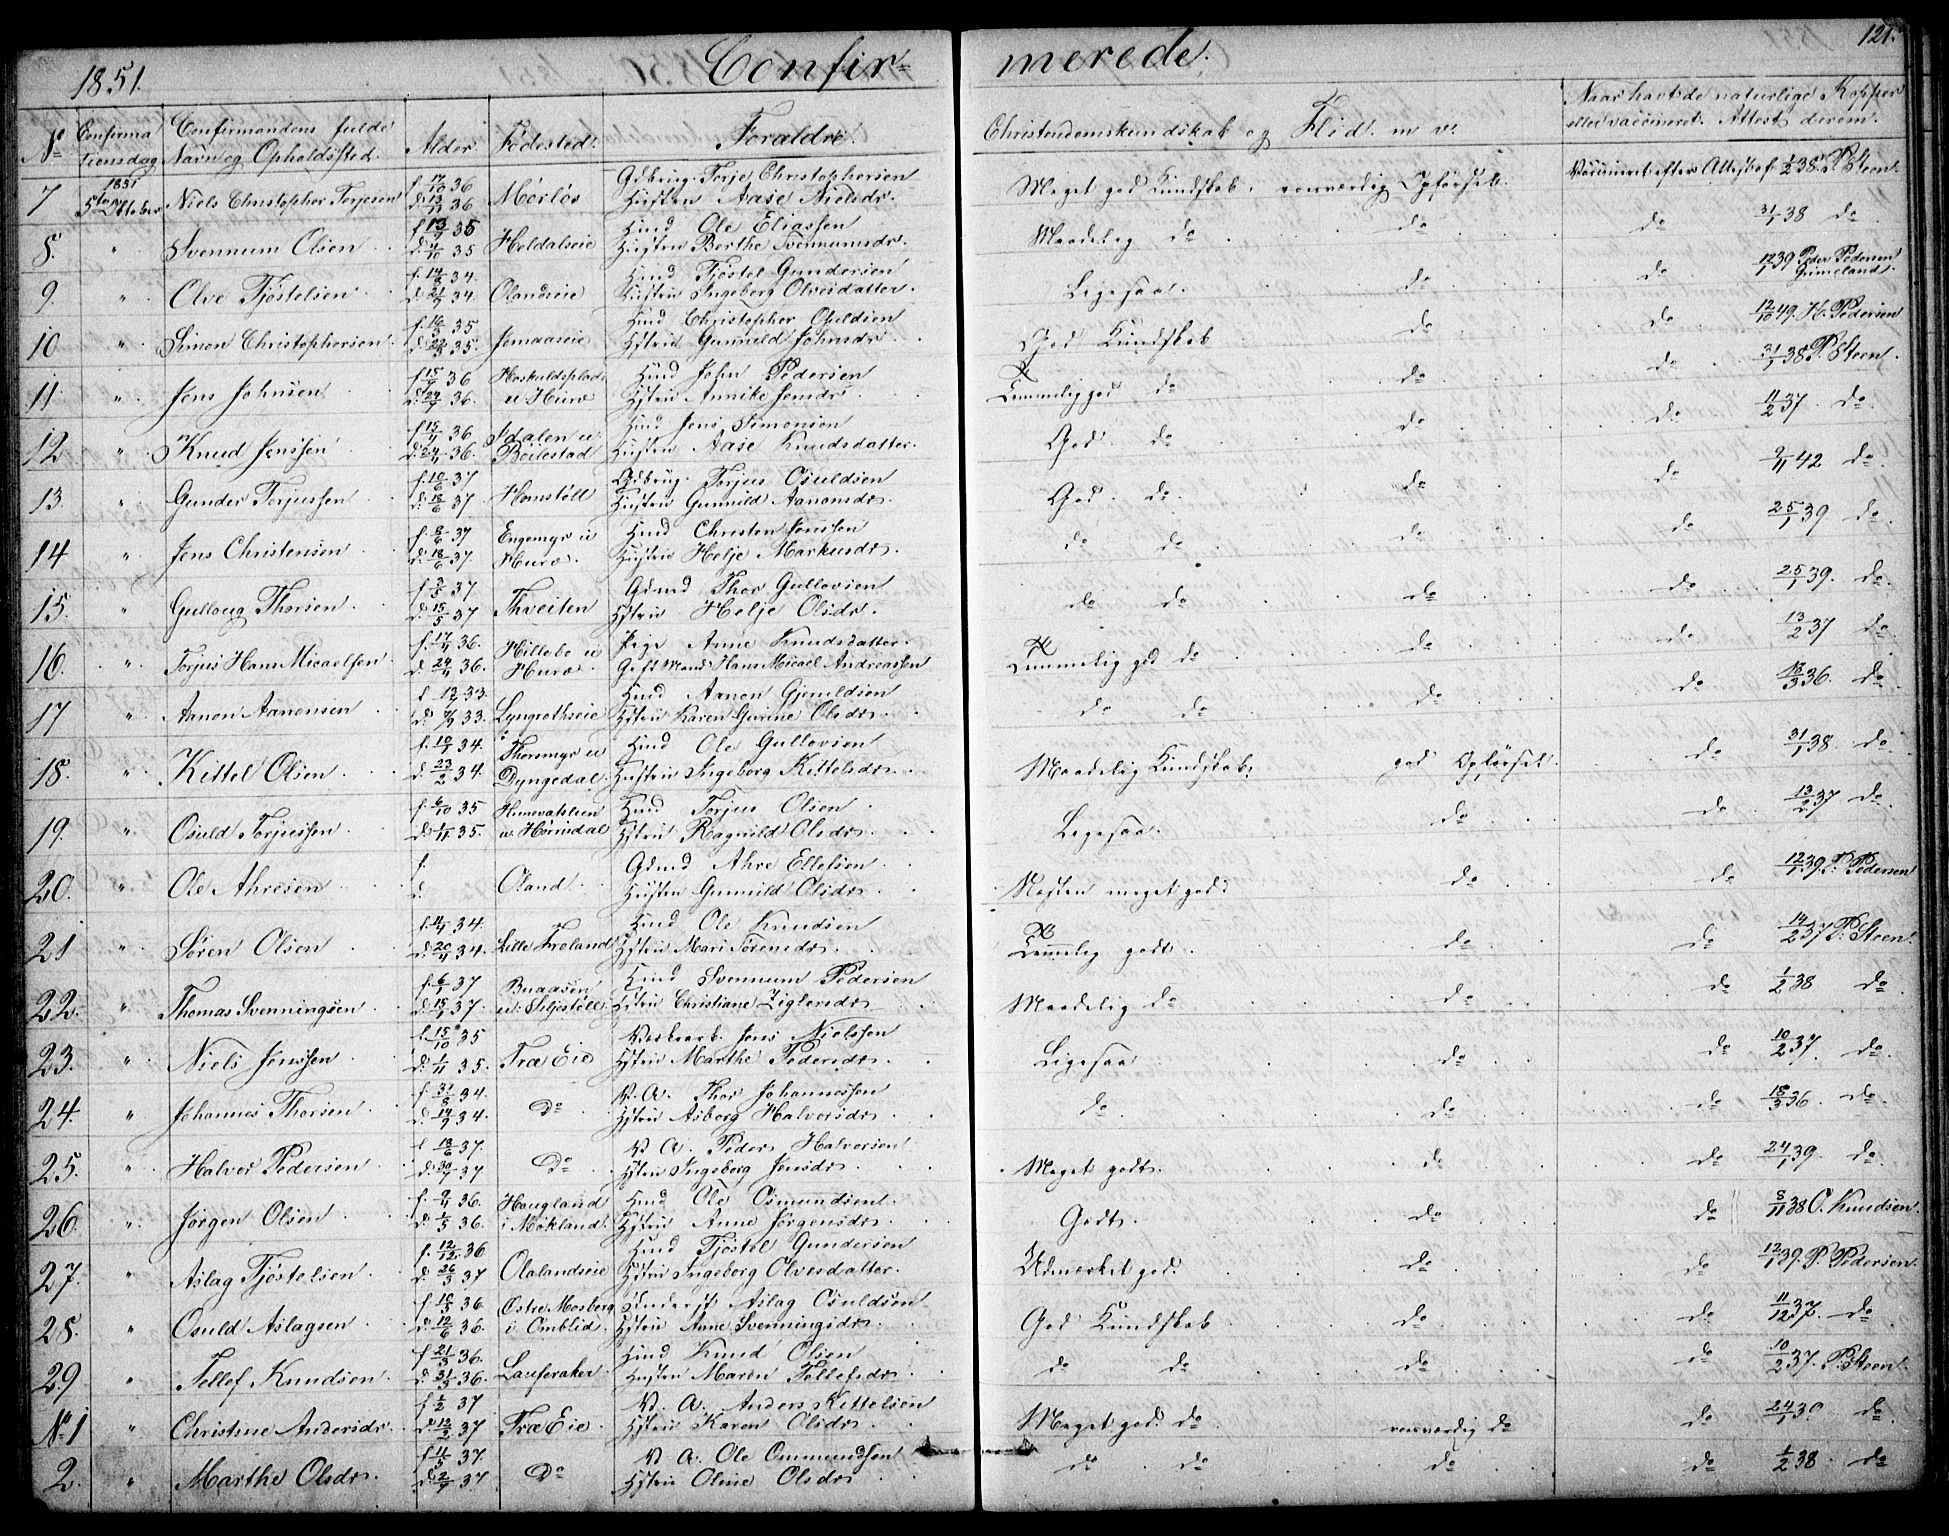 1851. Confirmerede. 121.
No Confirmationsdag Confirmandens fulde Navn og Opholdssted. Alder. Fødested. Forældre. Christendomskundskab og Flid m. v. Naar havt de naturlige Kopper eller vaccineret. Attest derom.
7 1851 5te Octtober Niels Christopher Terjesen f. 17/10 36 d. 13/11 36 Mørløs Gdbrug. Terje Christophersen Hustru Aase Nielsdr. Meget god Kundskab, roesværdig Opførsel. Vaccineret efter Attest af 1/2 38. P. Steen.
8. " Svennum Olsen f. 13/9 35 d. 4/10 35 Heldalseie Hmd Ole Eliassen Hustru Berthe Svennumsdr. Maadelig do do do 31/1 38 do
9. " Olve Tjøstelsen f. 14/8 34. d. 21/9 34. Olandseie Hmd Tjøstel Gundersen Hustru Ingeborg Olvesdatter. Ligesaa. do do 12/1 39 Peder Pedersen Grimeland.
10 " Simon Christophersen f. 16/3 35 d. 22/3 35. Jomaaseie Hmd Christopher Osuldsen Hstru Gunnild Johnsdr. God Kundskab do do 12/10 49. H. Pedersen
11. " Jens Johnsen f. 15/9 36 d. 24/9 36. Hoskuldsplads u Hurv Hmd John Pedersen Hstru Annike Jensdr. Temmelig god do do do 31/1 38 P. Steen.
12 " Knud Jenssen f. 15/4 36 d. 24/4 36. Idalen u. Bøilestad Hmd Jens Simonsen Hustru Aase Knudsdatter. God do do do 11/2 37. do
13. " Gunder Terjussen f. 10/6 37 d. 18/6 37 Homstøll Gdbrug. Terjus Osuldsen Hustru Gunnild Aanonsdr. God. do. do do 9/11 42 do.
14 " Jens Christensen f. 8/6 37 d. 18/6 37. Engemyr u Hurv. Hmd Christen Jenssen Hustru Helje Markusdr. do do. do do 25/1 39 do
15. " Gulloug Thorsen f. 3/5 37 d. 15/5 37 Thveiten Gdmd Thor Gullovsen Hstru Helje Olsdr. do do do do 25/1 39. do.
16. " Terjus Hans Micaelsen f. 17/4 36. d. 24/4 36. Hillebo u Hurv. Pige Anne Knudsdatter. Gift Mand Hans Micael Andreassen Temmelig god do do do 13/2 37 do
17 " Aanon Aanonsen f. 12/7 33. d. 9/9 33. Lyngrothseie Hmd Aanon Gjeruldsen Hstru Karen Gurine Olsdr. do do do do 18/3 36. do
18. " Kittel Olsen f. 10/1 34. d. 23/2 34. Thoremyr u Dyngedal. Hmd Ole Gullovsen Hustru Ingeborg Kittelsdr. Maadelig Kundskab, god Opførsel. do 31/1 38. do
19. " Osuld Terjussen f. 6/10 35 d. 1/11 35. u. Hørnidal Hmd Terjus Olsen Hstru Ragnild Olsdr. Ligesaa. do do 13/2 37 do
20. " Ole Ahresen f. d. Oland. Gdmd Ahre Ellefsen Hustru Gunnild Olsdr. Næsten meget god. do do 12/1 39. P. Pedersen
21 " Søren Olsen f. 14/4 34. d. 20/4 34. Lille Froland Hmd Ole Knudsen Hstru Mari Sørensdr. Temmelig godt do do 14/2 37 P. Steen.
22. " Thomas Svenningsen f. 6/1 37 d. 15/1 37. Buaasen u. Seljestøll. Hmd Svennum Pedersen Hstru Christiane Ziglersdr. Maadelig do do do 1/2 38 do
23. " Niels Jenssen f. 15/10 35 d. 1/11 35. Træ Eie Værkarb. Jens Nielssen Hstru Marthe Pedersdr. Ligesaa do do 10/2 37. do
24. " Johannes Thorsen f. 31/8 34. d. 14/9 34. Do V. A. Thor Johannessen Hstru Asborg Halvorsdr. do do do 18/3 36. do.
25. " Halvor Pedersen f. 18/6 37. d. 30/7 37 Do V A. Peder Halvorsen Hstru Ingeborg Jensdr. Meget godt. do do 24/1 39. do
26. " Jørgen Olsen f. 9/4 36. d. 1/5 36. Hougland i Mökland. Hmd Ole Osmundsen Hstru Anne Jørgensdr. Godt. do do 8/11 38 O. Knudsen.
27. " Aslag Tjøstelsen f. 12/12 36 d. 26/3 37 Olalandseie Hmd Tjøstel Gundersen Hstru Ingeborg Olvesdatter. Udmærket god. do do 12/1 39. P. Pedersen.
28. " Osuld Aslagsen f. 18/5 36. d. 12/6 36. Østre Mosberg i Omblid. Aslag Osuldsen Hstru Anne Svenningsdr. God Kundskab do. do 11/12 37. do
29. " Tellef Knudsen f. 21/3 36. d. 31/3 36. Lauferaker Hmd Knud Olsen Hustru Maren Tellefsdr. do do do do 10/2 37. P. Steen.
No 1 " Christine Andersdr. f. 1/2 37 d. 12/2 37 Træ Eie V. A. Anders Kittelsen Hstru Karen Olsdr. Meget god. do roesværdig do do 24/1 39 do
2. " Marthe Olsdr. f. 11/5 37. d. 2/7 37 Do V A. Ole Ommundsen Hstru Oline Olsdr. do do do do 1/2 38. do